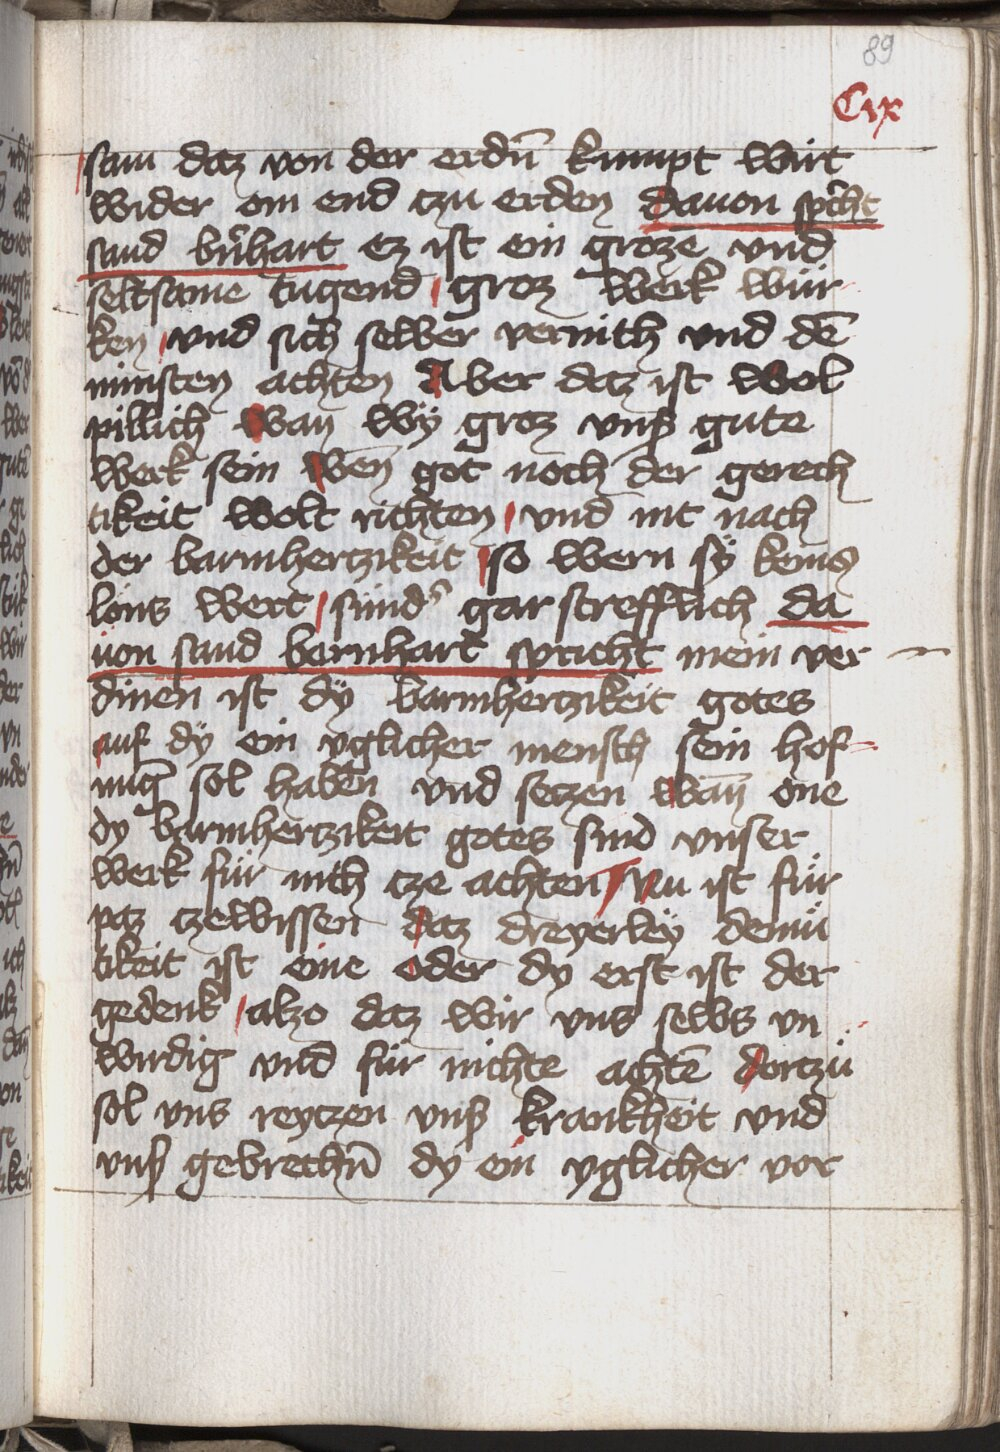 89
Cix
sam daz von der erdn̄ kumpt wirt
wider ein end czu erden dauon sp̄cht
sand bn̄hart ez ist ein groze vnd
seltsame tugend groz werk wür
ken vnd sich selber vernith vnd dē
minsten achten Aber daz ist wol
pillich wan wÿ groz vnß gute
werk sein wen̄ got noch der gerech
tikeit wolt richten vnd nit nach
der barmherczikeit so wern sÿ keins
lons wert sunder gar strefflich da
uon sand bernhart spricht mein ver
dinen ist dÿ barmherczikeit gotes
auf dÿ ein yglicher mensch sein hof
nūg sol haben vnd seczen wan̄ one
dy barmherczikeit gotes sind vnser
werk für nith cze achten Nu ist für
paz czewissen daz dreyerleÿ demü
tikeit ist eine oder dy erst ist der
gedenk alzo daz wir vns selbs vn
wirdig vnd für nichte achtē dorczü
sol vns reyczen vnß krankheit vnd
vnß gebrechn̄ dy ein yglicher vor